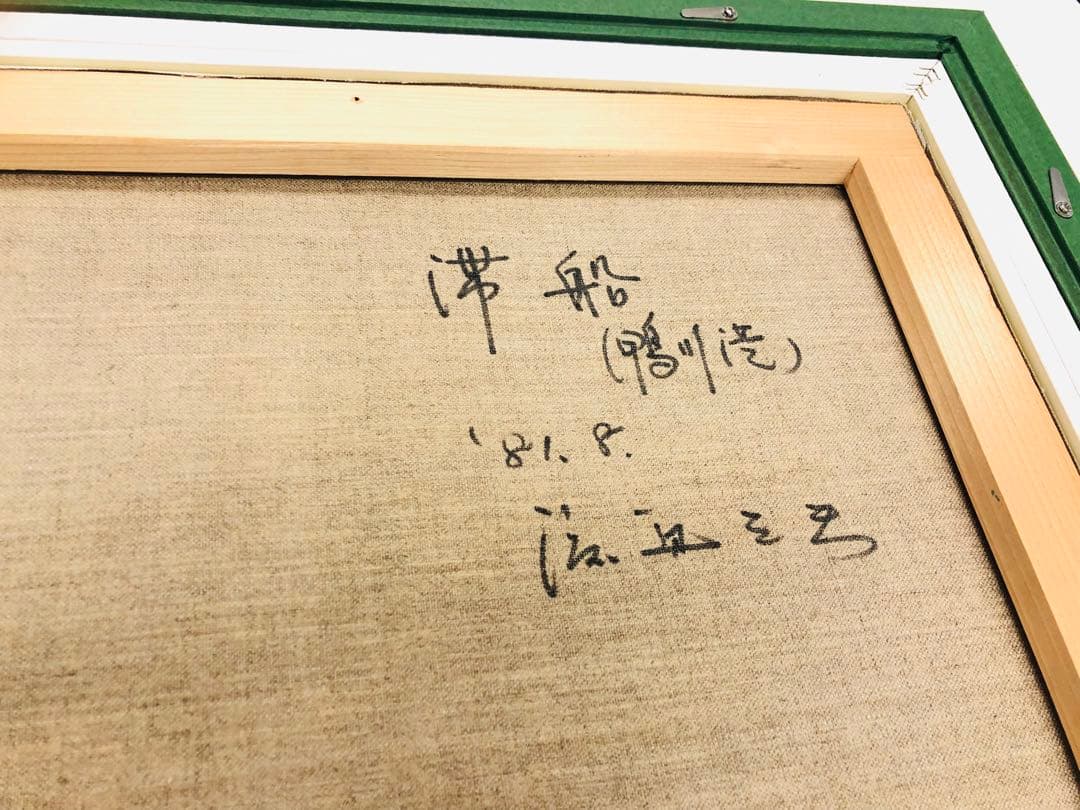 滞船
(鴨川港)
'81.8.